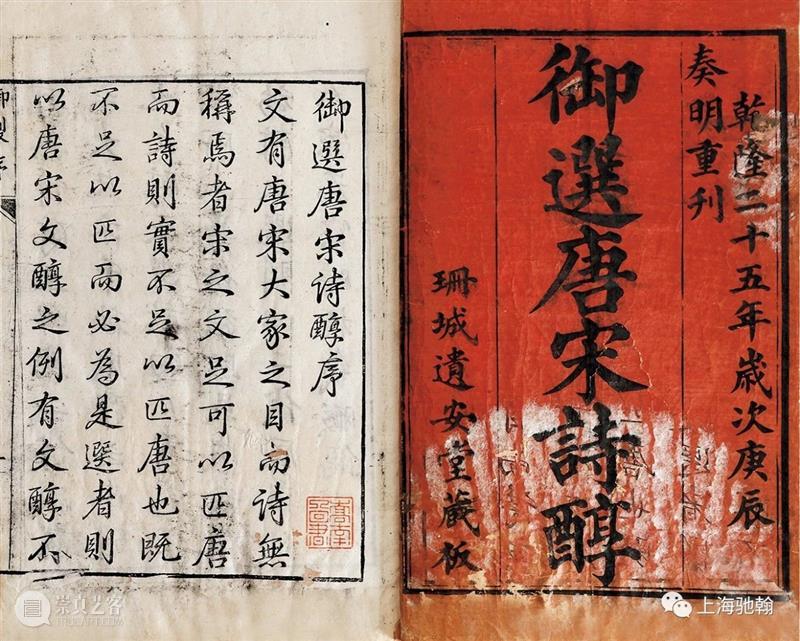 乾隆二十五年歲次庚辰
奏明重刊
御選唐宋詩醇
珊城遺安堂藏板
御選唐宋詩醇序
文有唐宋大家之目而詩無
稱焉者宋之文足可以匹唐
而詩則實不足以匹唐也既
不足以匹而必為是選者則
以唐宋文醇之例有文醇不
崇真艺客
上海驰翰